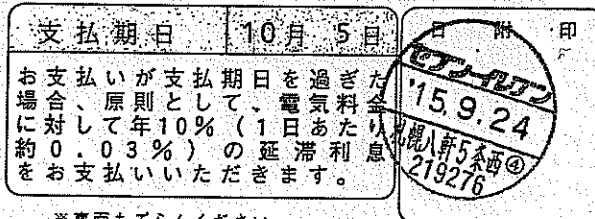 支払期日 10月 5日
お支払いが支払期日を過ぎた
場合、原則として、電気料金
に対して年10%(1日あたり
約0.03%)の延滞利息
をお支払いいただきます。
日附印
セブン-イレブン
'15.9.24
札幌八軒5条西④
219276
※裏面もごらんください